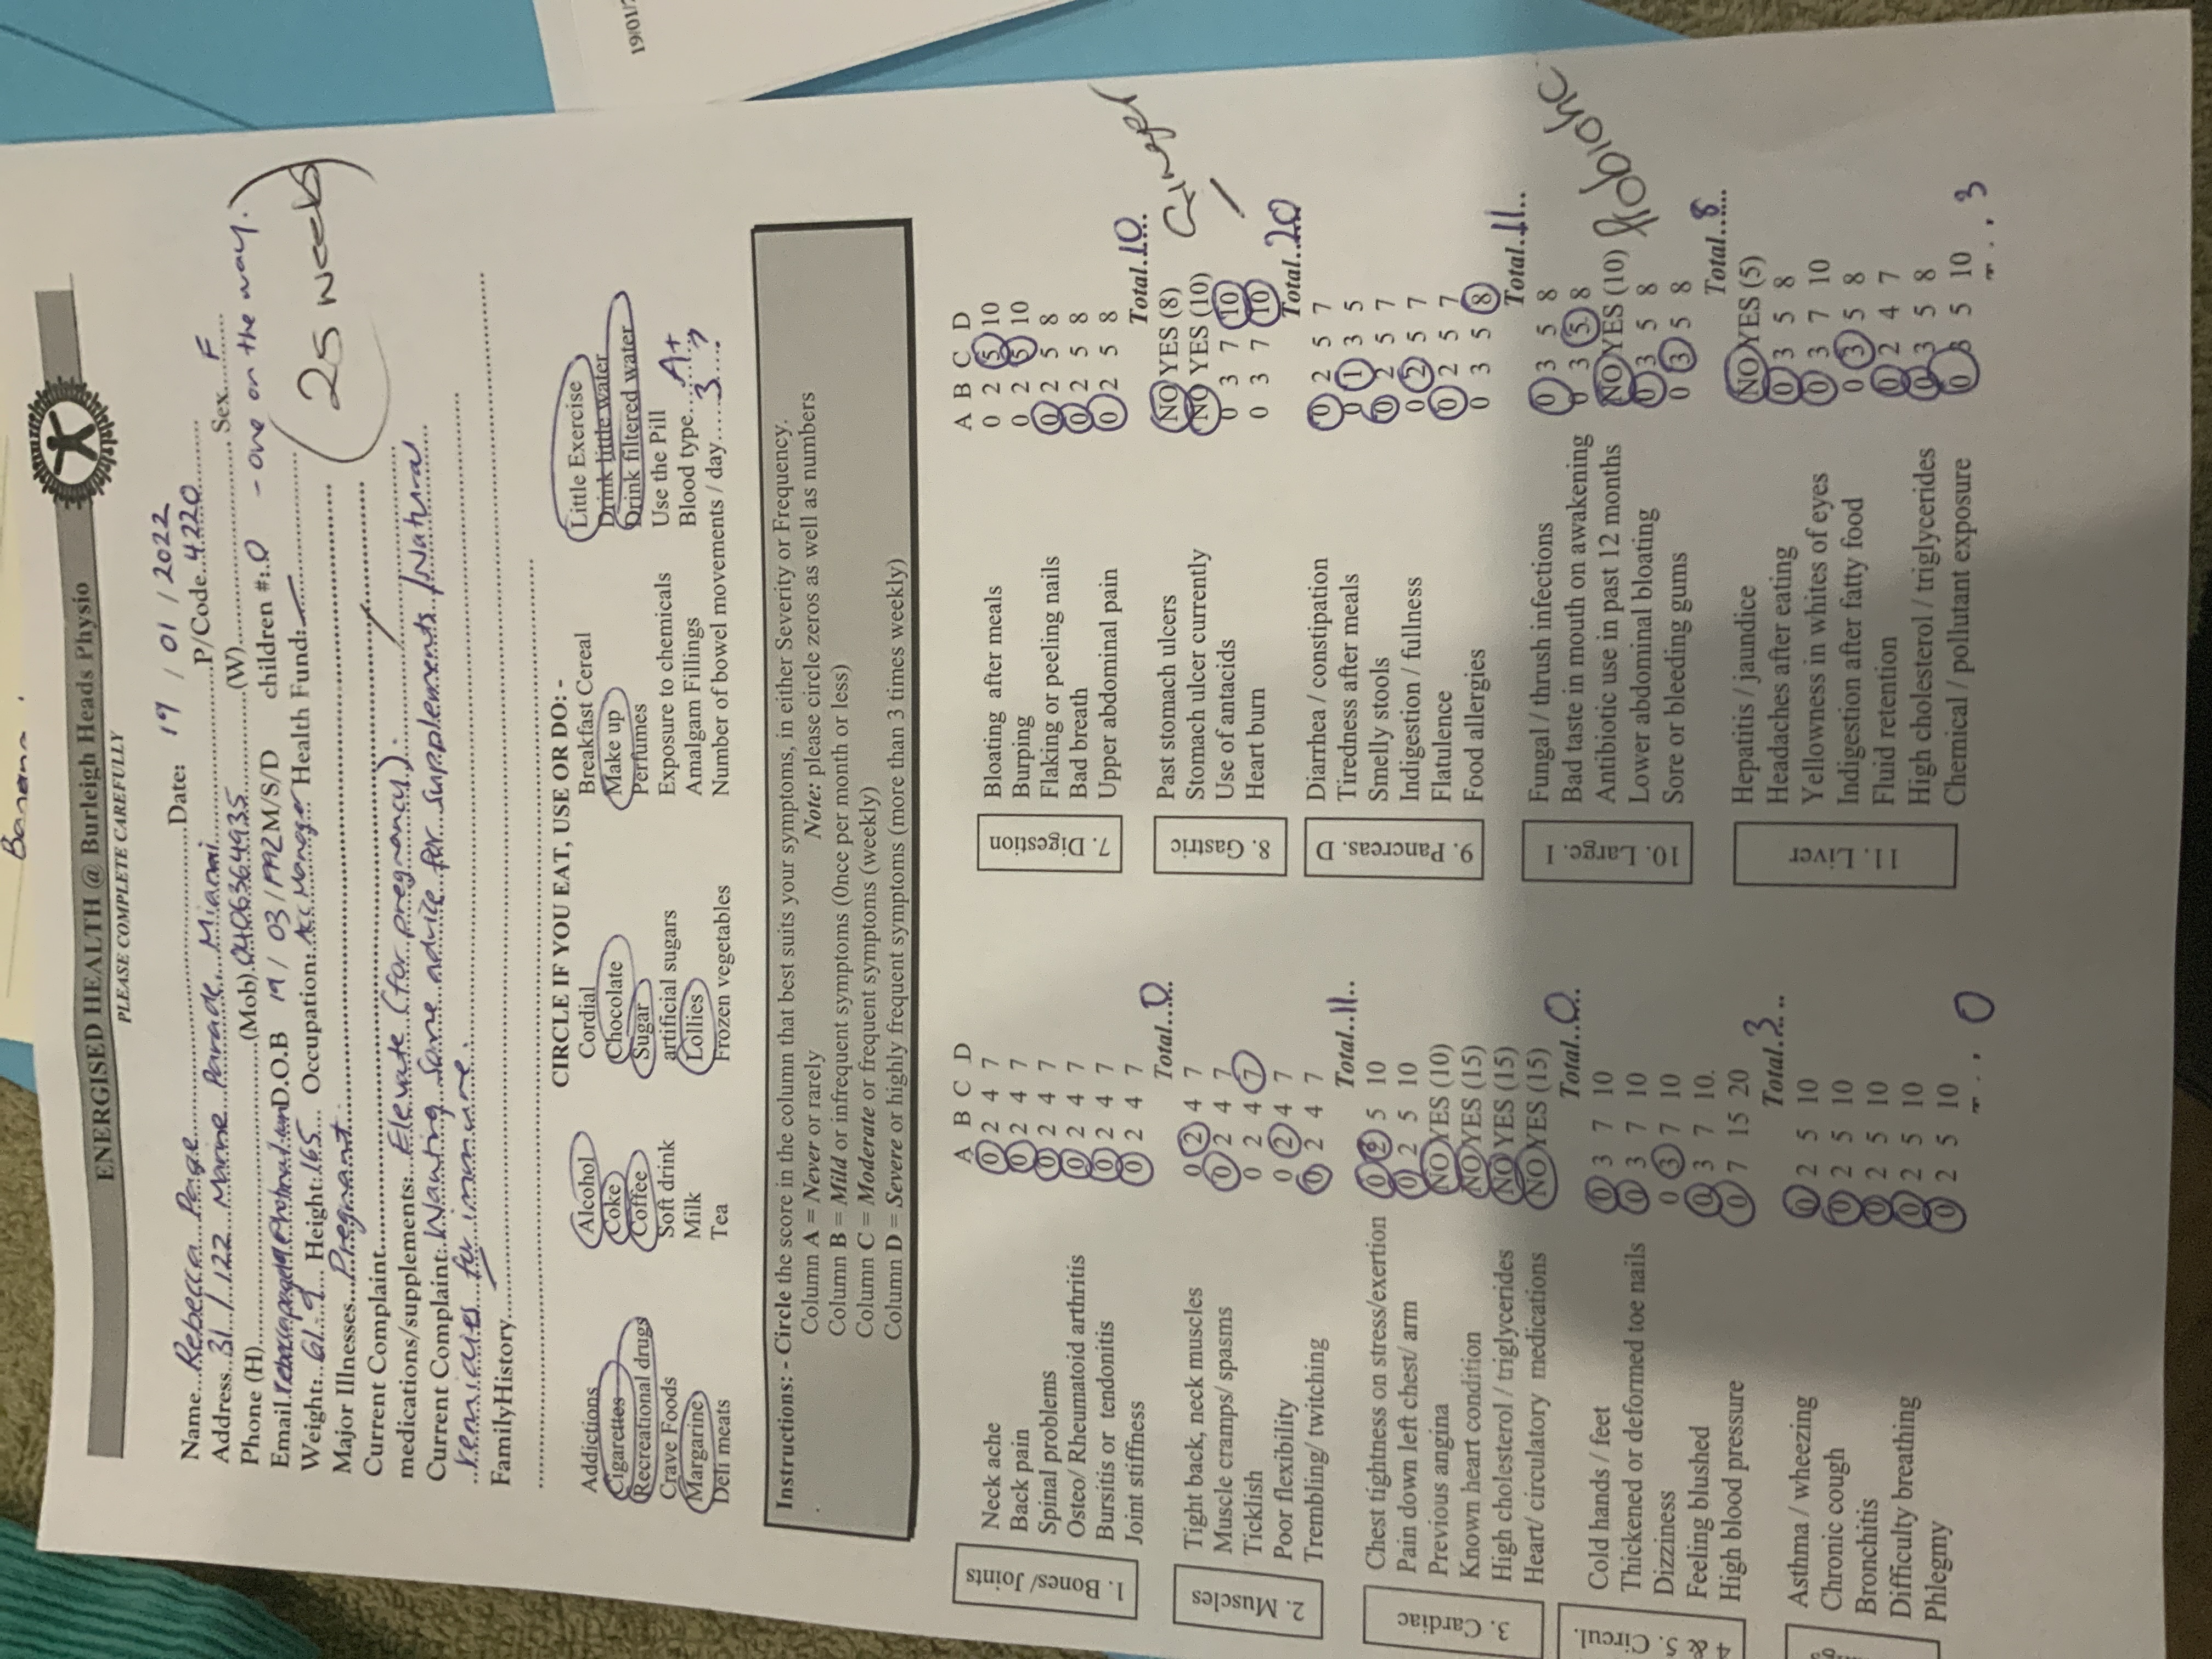 Banana
19/01/
ENERGISED HEALTH @ Burleigh Heads Physio
PLEASE COMPLETE CAREFULLY
Name...Rebecca Page...Date: 19 / 01 / 2022
Address...31 / 122 Marine Parade Miami...P/Code...4220
Phone (H)...(Mob).0406364935...(W)...Sex...F
Email...D.O.B 19 / 03 / 1992 M/S/D children #:.0 - one on the way.
Weight:.61.9... Height:.165... Occupation:.Acc Manager Health Fund:
Major Illnesses....Pregnant
(25 weeks)
Current Complaint
medications/supplements:.Elevate (for pregnancy)
Current Complaint:.Wanting some advice for supplements / Natural
remedies for immune.
FamilyHistory
CIRCLE IF YOU EAT, USE OR DO: -
Addictions Alcohol Cordial Breakfast Cereal Little Exercise
Cigarettes Coke Chocolate Make up Drink little water
Recreational drugs Coffee Sugar Perfumes Drink filtered water
Crave Foods Soft drink artificial sugars Exposure to chemicals Use the Pill
Margarine Milk Lollies Amalgam Fillings Blood type....A+
Deli meats Tea Frozen vegetables Number of bowel movements / day....3 ?
Instructions: - Circle the score in the column that best suits your symptoms, in either Severity or Frequency.
Column A = Never or rarely Note: please circle zeros as well as numbers
Column B = Mild or infrequent symptoms (0nce per month or less)
Column C = Moderate or frequent symptoms (weekly)
Column D = Severe or highly frequent symptoms (more than 3 times weekly)
A B C D
1. Bones/ Joints
Neck ache 0 2 4 7
Back pain 0 2 4 7
Spinal problems 0 2 4 7
Osteo/ Rheumatoid arthritis 0 2 4 7
Bursitis or tendonitis 0 2 4 7
Joint stiffness 0 2 4 7
Total...0
2. Muscles
Tight back, neck muscles 0 2 4 7
Muscle cramps/ spasms 0 2 4 7
Ticklish 0 2 4 7
Poor flexibility 0 2 4 7
Trembling/ twitching 0 2 4 7
Total...11
3. Cardiac
Chest tightness on stress/exertion 0 2 5 10
Pain down left chest/ arm 0 2 5 10
Previous angina NO YES (10)
Known heart condition NO YES (15)
High cholesterol / triglycerides NO YES (15)
Heart/ circulatory medications NO YES (15)
Total...0
4 & 5. Circul.
Cold hands / feet 0 3 7 10
Thickened or deformed toe nails 0 3 7 10
Dizziness 0 3 7 10
Feeling blushed 0 3 7 10.
High blood pressure 0 7 15 20
Total...3
Asthma / wheezing 0 2 5 10
Chronic cough 0 2 5 10
Bronchitis 0 2 5 10
Difficulty breathing 0 2 5 10
Phlegmy 0 2 5 10
0
A B C D
7. Digestion
Bloating after meals 0 2 5 10
Burping 0 2 5 10
Flaking or peeling nails 0 2 5 8
Bad breath 0 2 5 8
Upper abdominal pain 0 2 5 8
Total...10
8. Gastric
Past stomach ulcers NO YES (8)
Stomach ulcer currently NO YES (10)
Use of antacids 0 3 7 10
Heart burn 0 3 7 10
Total...20
Ginger
9. Pancreas. D
Diarrhea / constipation 0 2 5 7
Tiredness after meals 0 1 3 5
Smelly stools 0 2 5 7
Indigestion / fullness 0 2 5 7
Flatulence 0 2 5 7
Food allergies 0 3 5 8
Total...11
10. Large. I
Fungal / thrush infections 0 3 5 8
Bad taste in mouth on awakening 0 3 5 8
Antibiotic use in past 12 months NO YES (10)
Lower abdominal bloating 0 3 5 8
Sore or bleeding gums 0 3 5 8
Total...8
Probiotic
11. Liver
Hepatitis / jaundice NO YES (5)
Headaches after eating 0 3 5 8
Yellowness in whites of eyes 0 3 7 10
Indigestion after fatty food 0 3 5 8
Fluid retention 0 2 4 7
High cholesterol / triglycerides 0 3 5 8
Chemical / pollutant exposure 0 3 5 10
3